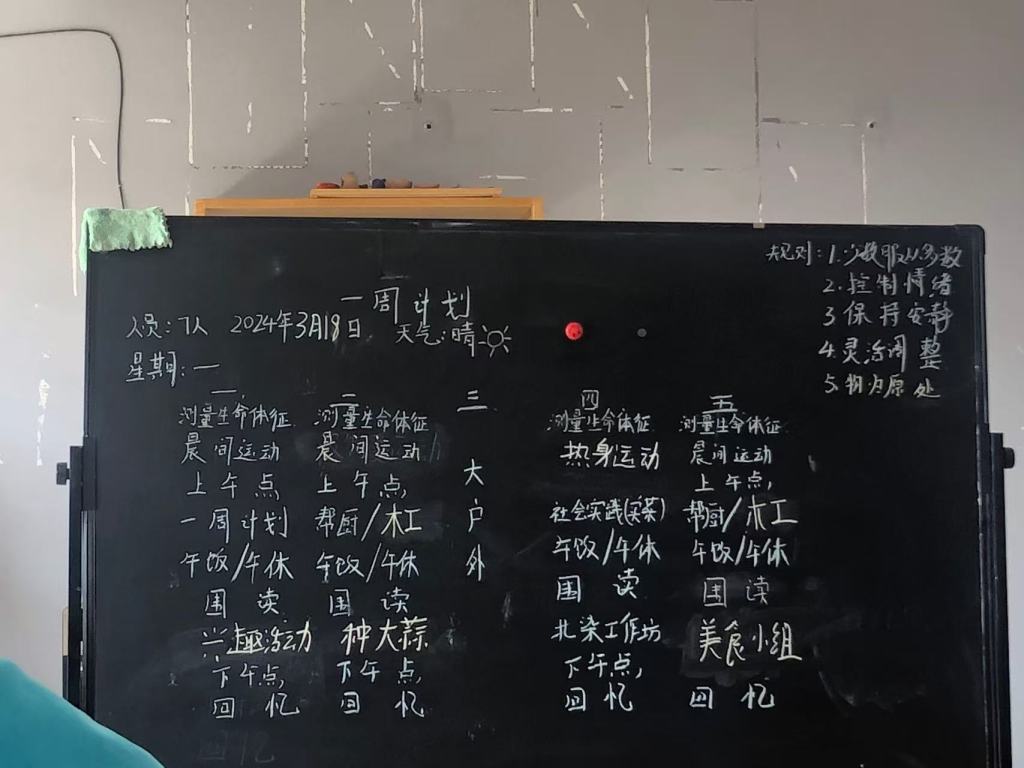 一周计划
人员:7人 2024年3月18日 天气:晴
星期:一
规则:1.少数服从多数
2.控制情绪
3.保持安静
4.灵活调整
5.物归原处
一
测量生命体征
晨间运动
上午点
一周计划
午饭/午休
围读
兴趣活动
下午点
回忆
二
测量生命体征
晨间运动
上午点
帮厨/木工
午饭/午休
围读
种大蒜
下午点
回忆
三
大户外
四
测量生命体征
热身运动
社会实践(买菜)
午饭/午休
围读
扎染工作坊
下午点
回忆
五
测量生命体征
晨间运动
上午点
帮厨/木工
午饭/午休
围读
美食小组
回忆
回忆